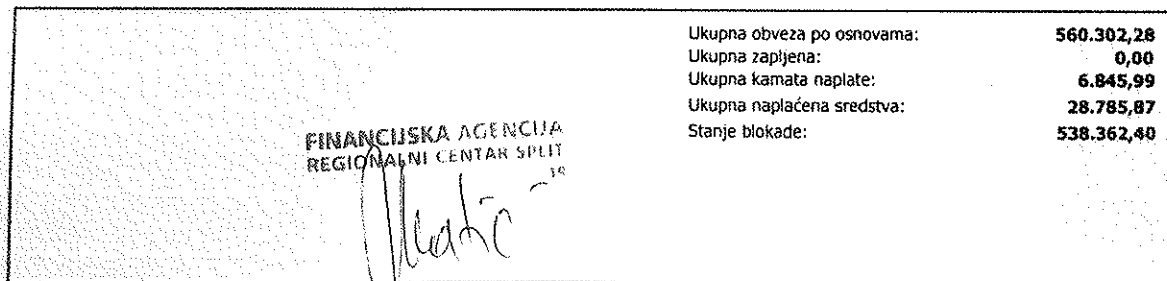 Ukupna obveza po osnovama: 560.302,28
Ukupna zapljena: 0,00
Ukupna kamata naplate: 6.845,99
Ukupna naplaćena sredstva: 28.785,87
Stanje blokade: 538.362,40
FINANCIJSKA AGENCIJA
REGIONALNI CENTAR SPLIT